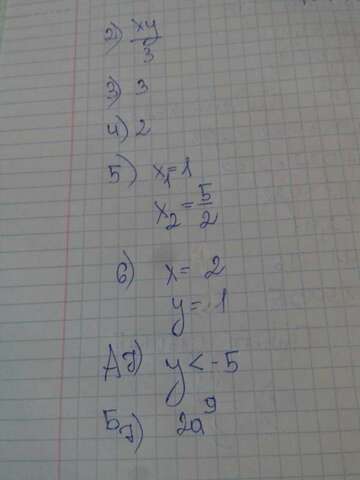 2) xy/3
3) 3
4) 2
5) x₁=1
x₂=5/2
6) x= 2
y= 1
А7) y<-5
Б7) 2a⁹